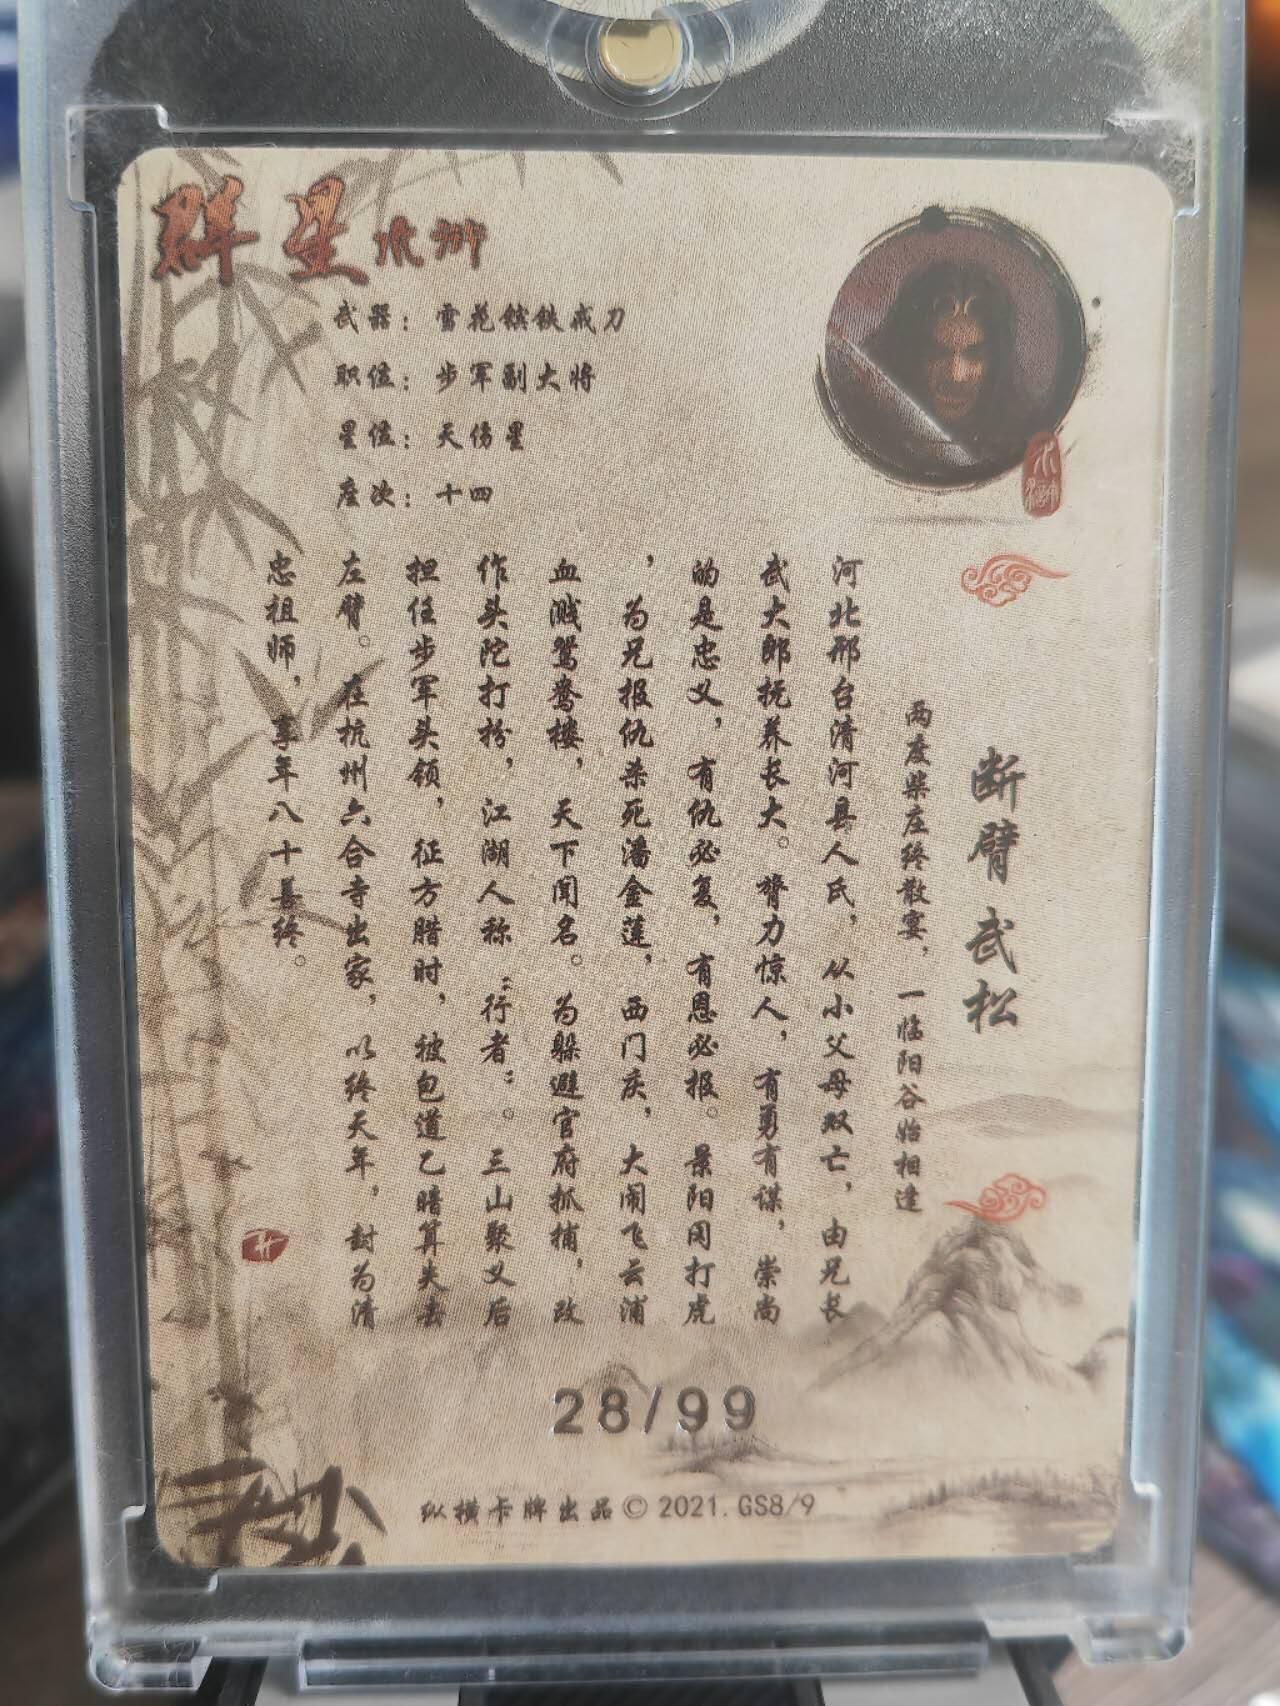 群星水浒
武器：雪花镔铁戒刀
职位：步军副大将
星位：天伤星
座次：十四
水浒
断臂武松
两度柴庄终散宴，一临阳谷始相逢
河北邢台清河县人氏，从小父母双亡，由兄长
武大郎抚养长大。膂力惊人，有勇有谋，崇尚
的是忠义，有仇必复，有恩必报。景阳冈打虎
，为兄报仇杀死潘金莲，西门庆，大闹飞云浦
血溅鸳鸯楼，天下闻名。为躲避官府抓捕，改
作头陀打扮，江湖人称“行者”。三山聚义后
担任步军头领，征方腊时，被包道乙暗算失去
左臂。在杭州六合寺出家，以终天年，封为清
忠祖师，享年八十善终。
28/99
纵横卡牌出品©2021.GS8/9